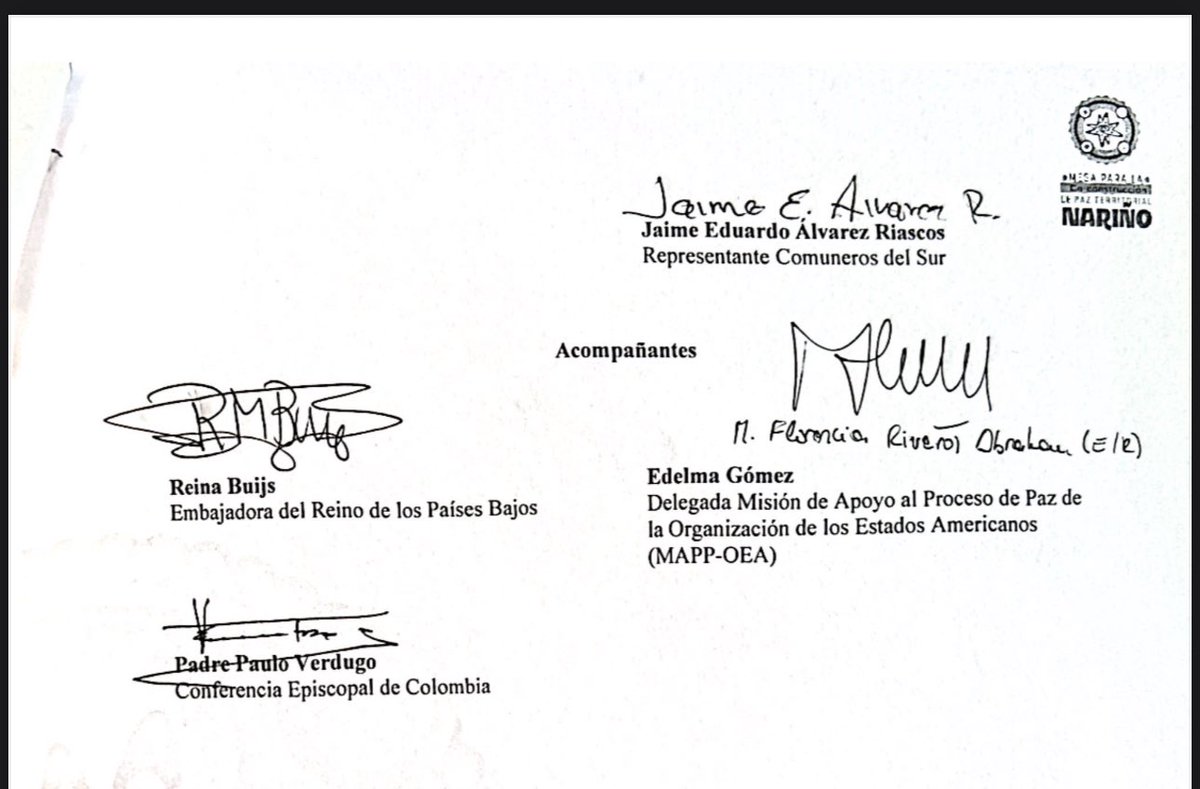 MESA PARA LA
Co-construcción
DE PAZ TERRITORIAL
NARIÑO
Jaime E. Alvarez R.
Jaime Eduardo Álvarez Riascos
Representante Comuneros del Sur
Acompañantes
RMBuijs
M. Florencia Riveros Abraham (E/R)
Reina Buijs
Embajadora del Reino de los Países Bajos
Edelma Gómez
Delegada Misión de Apoyo al Proceso de Paz de
la Organización de los Estados Americanos
(MAPP-OEA)
Padre Paulo Verdugo
Conferencia Episcopal de Colombia